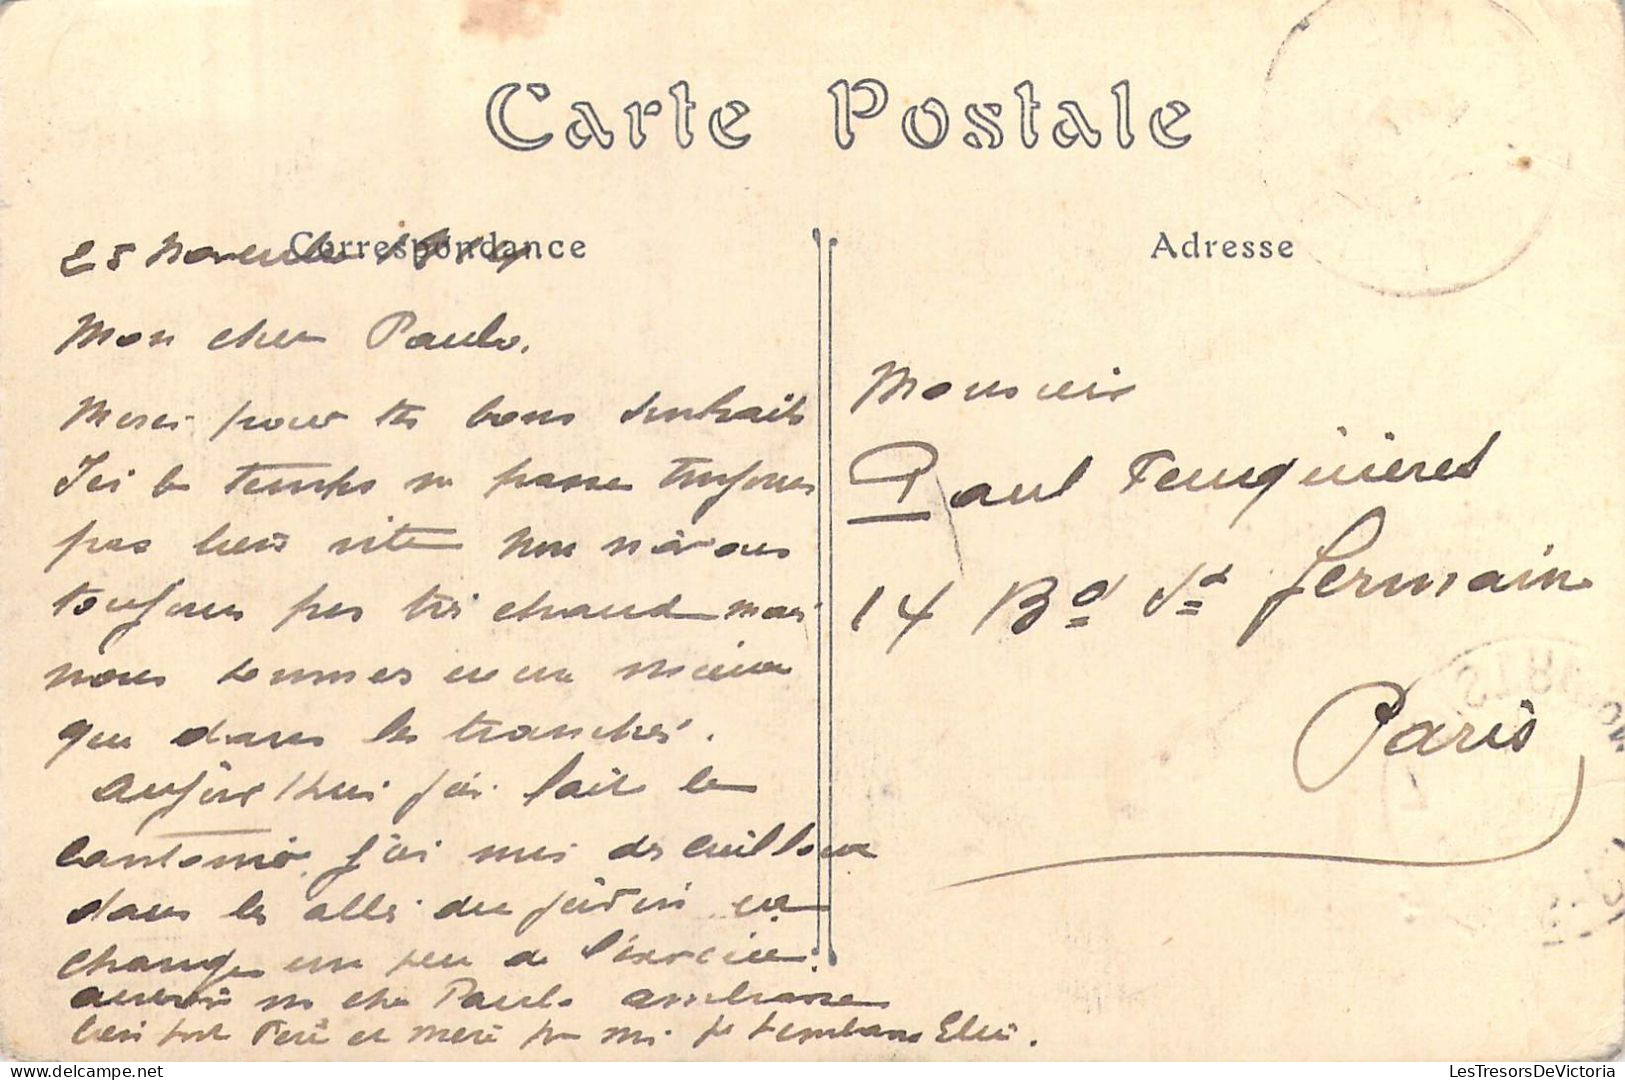 Carte Postale
Correspondance
Adresse
25 novembre 1914
Mon cher Paulo,
Merci pour tes bons souhaits
Ici le temps ne passe toujours
pas bien vite nous n'avons
toujours pas très chaud mais
nous sommes encore mieux
que dans les tranchés.
Aujourd'hui j'ai fait le
cantonnié, j'ai mis des cailloux
dans les allé du jardin ça
change un peu de l'exercice.
aurevoir mon cher Paulo embrasse
bien fort Père et mère pour moi je t'embrasse
Monsieur
Paul Feuquières
14 Bd St Germain
Paris
LesTresorsDeVictoria